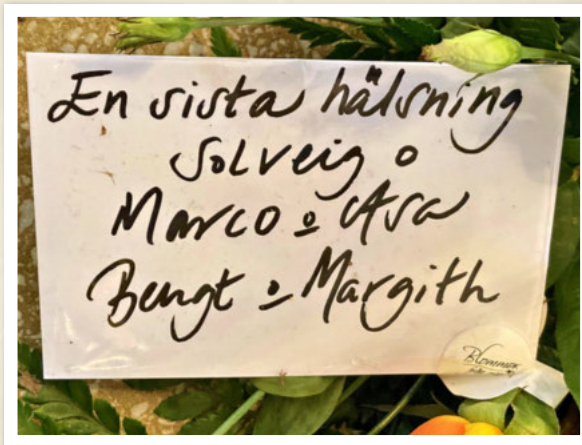 En sista hälsning
Solveig o
Marco o Åsa
Bengt o Margith